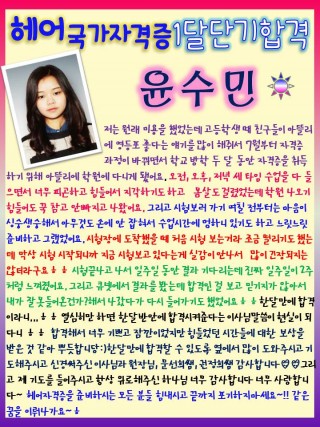 헤어국가자격증1달단기합격
윤수민
저는 원래 미용을 했었는데 고등학생 때 친구들이 아뜰리
에 영등포 좋다는 얘기를 많이 해줘서 7월부터 자격증
과정이 바뀌면서 학교 방학 두 달 동안 자격증을 취득
하기 위해 아뜰리에 학원에 다니게 됐어요, 오전, 오후, 저녁 세 타임 수업을 다 들
으면서 너무 피곤하고 힘들어서 지각하기도 하고 몸살도 걸렸었는데 학원 나오기
힘들어도 꾹 참고 안빠지고 나왔어요, 그리고 시험보러 가기 며칠 전부터는 마음이
싱숭생숭해서 아무것도 손에 안 잡혀서 수업시간에 멍하니 있기도 하고 느릿느릿
준비하고 그랬었어요, 시험장에 도착했을 때 처음 시험 보는거라 조금 떨리기도 했는
데 막상 시험 시작되니까 지금 시험보고 있다는게 실감이 안나서 많이 긴장되지는
않더라구요ㅎㅎ 시험끝나고 나서 일주일 동안 결과 기다리는데 진짜 일주일이 2주
처럼 느껴졌어요, 그리고 큐넷에서 결과를 봤는데 합격인 걸 보고 믿기지가 않아서
내가 잘못들어온건가?해서 나갔다가 다시 들어가기도 했었어요ㅎㅎ 한달만에 합격
이라니,,,ㅎㅎ 열심히만 하면 한달 반만에 합격시켜준다는 이사님말씀이 현실이 되
다니ㅎㅎ 합격해서 너무 기쁘고 잠깐이었지만 힘들었던 시간들에 대한 보상을
받은 것 같아 뿌듯합니당:)한달만에 합격할 수 있도록 옆에서 많이 도와주시고 기
도해주시고 신경써주신 이사님과 원장님, 문선쌤, 권정희쌤 감사합니다♡♡ 그리
고 제 기도를 들어주시고 항상 위로해주신 하나님 너무 감사합니다 너무 사랑합니
다~ 헤어자격증을 준비하시는 모든 분들 힘내시고 끝까지 포기하지마세요~!! 같은
꿈을 이뤄나가요~ㅎ